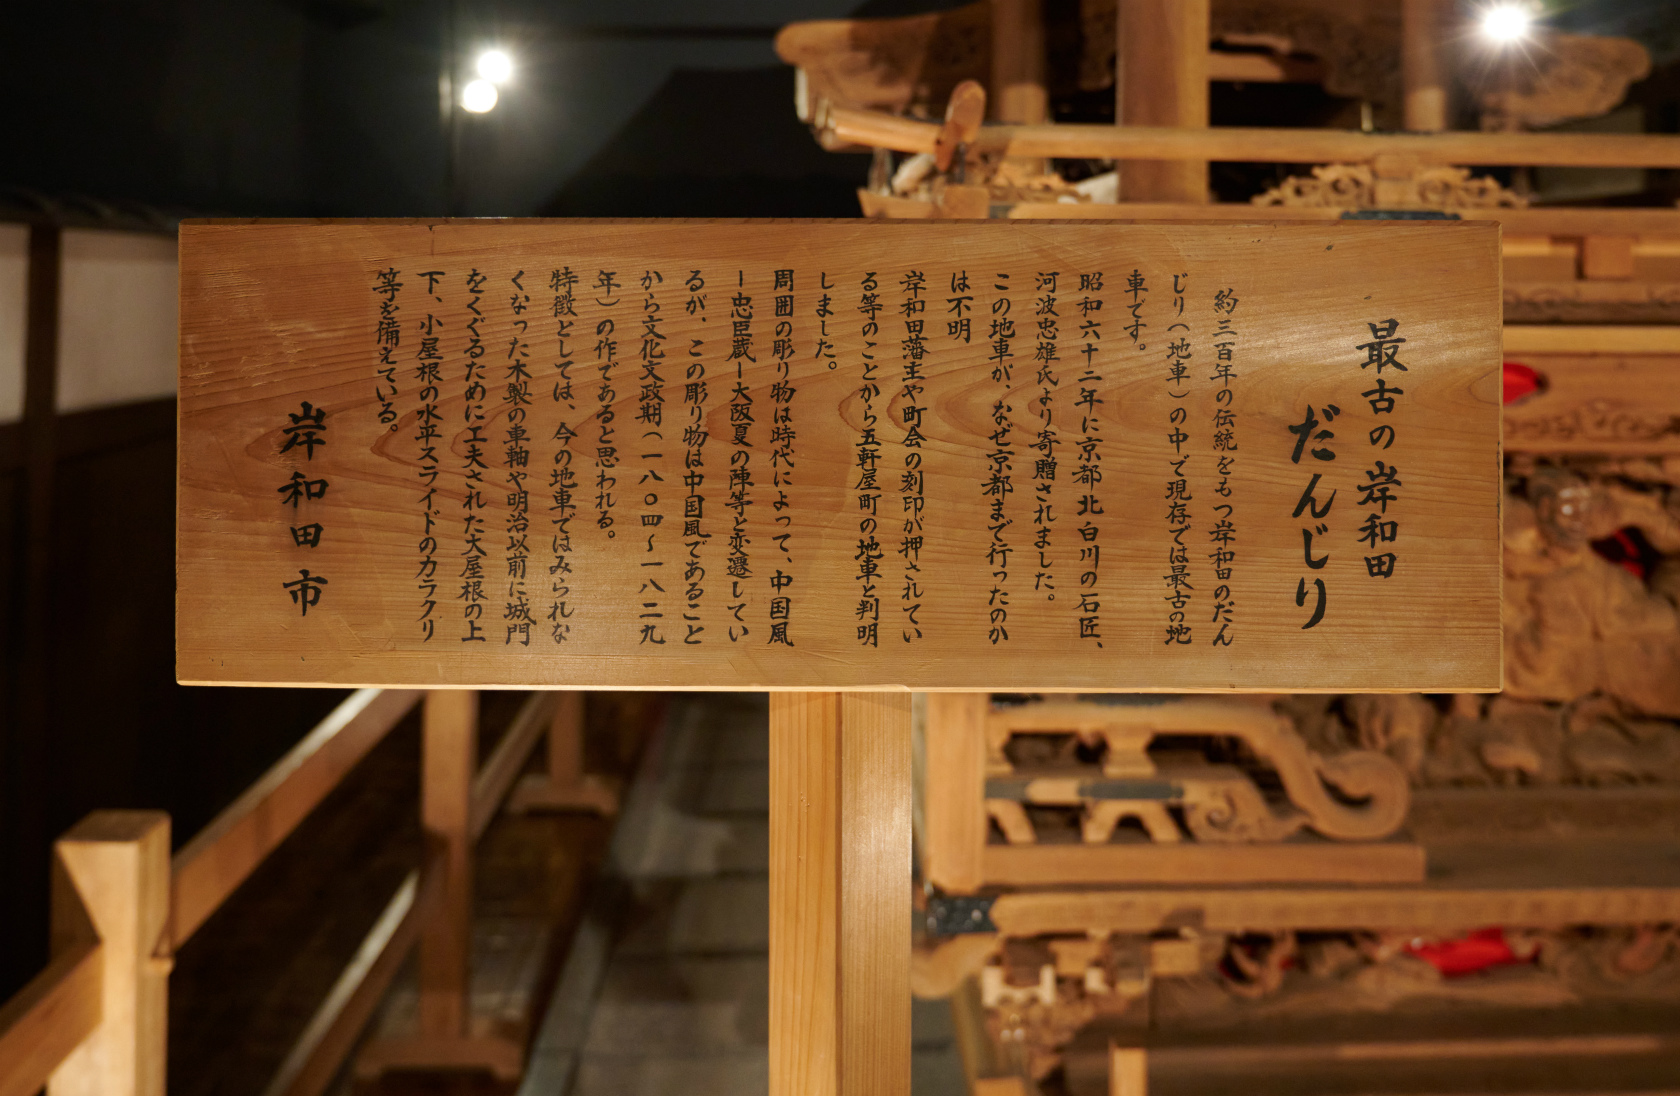 最古の岸和田
だんじり
約三百年の伝統をもつ岸和田のだん
じり（地車）の中で現存では最古の地
車です。
昭和六十二年に京都北白川の石匠、
河波忠雄氏より寄贈されました。
この地車が、なぜ京都まで行ったのか
は不明
岸和田藩主や町会の刻印が押されてい
る等のことから五軒屋町の地車と判明
しました。
周囲の彫り物は時代によって、中国風
ー忠臣蔵ー大阪夏の陣等と変遷してい
るが、この彫り物は中国風であること
から文化文政期（一八〇四～一八二九
年）の作であると思われる。
特徴としては、今の地車ではみられな
くなった木製の車軸や明治以前に城門
をくぐるために工夫された大屋根の上
下、小屋根の水平スライドのカラクリ
等を備えている。
岸和田市